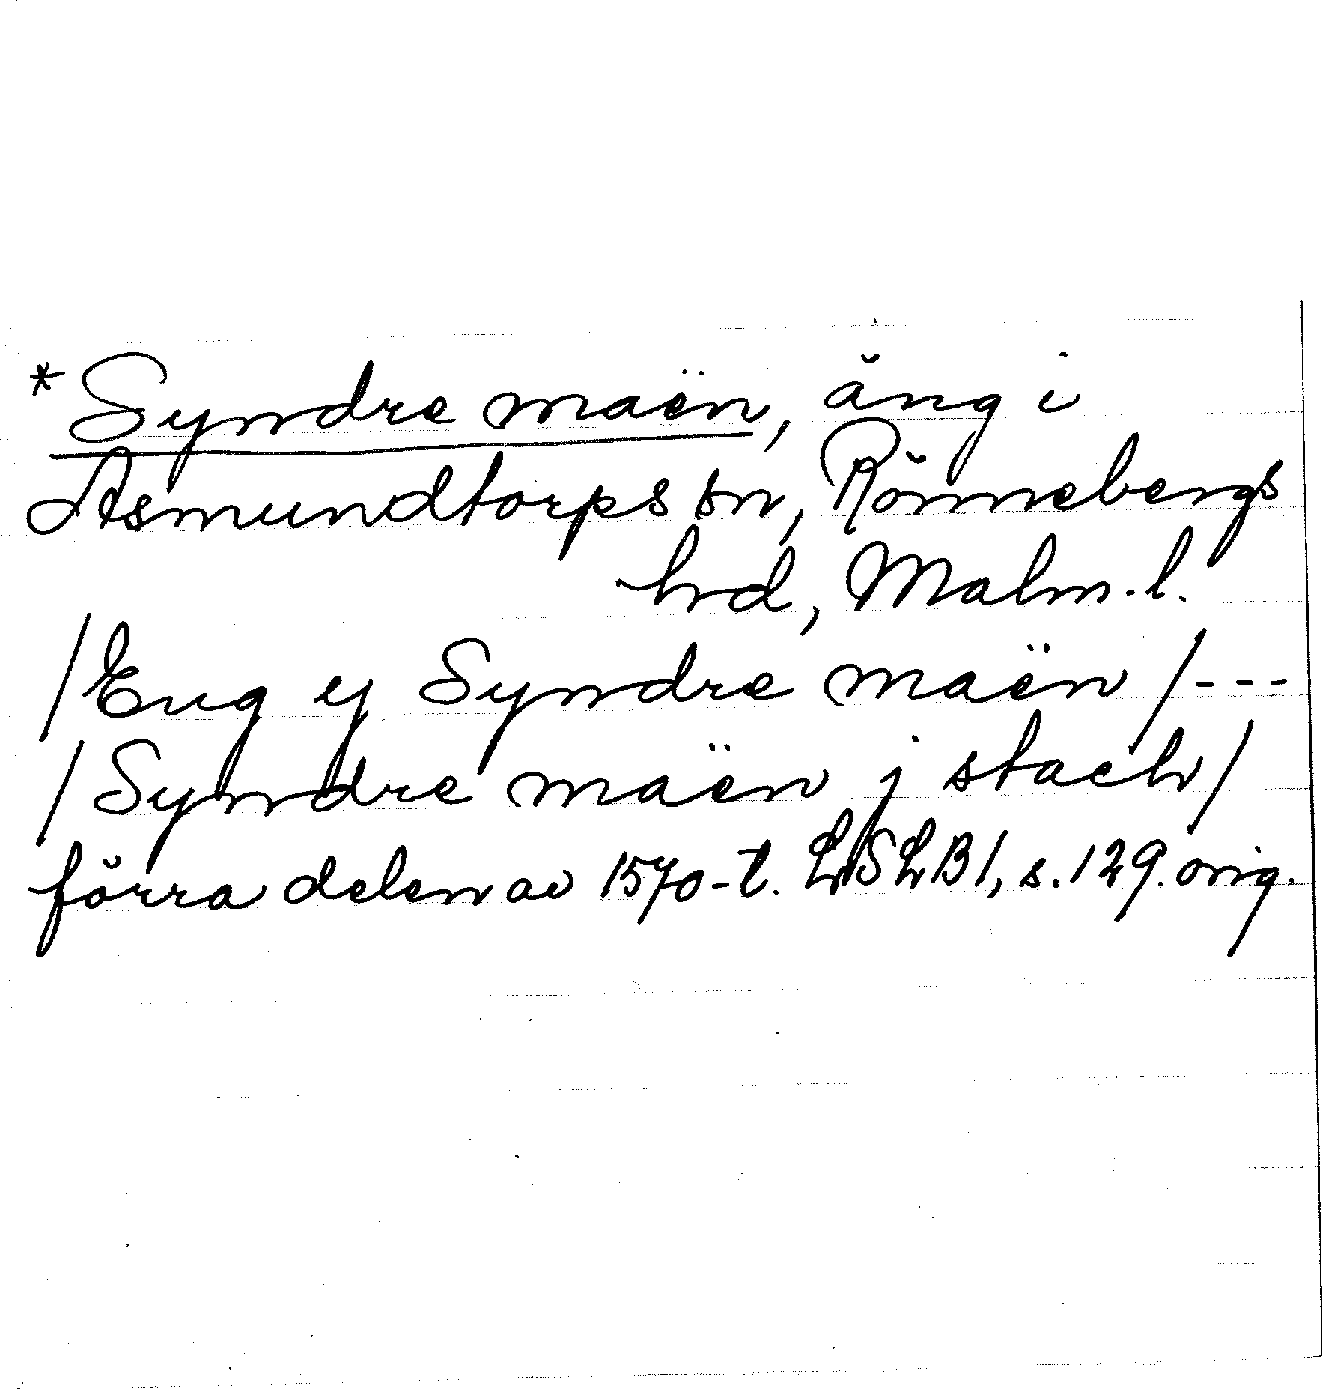 *Syndre maën, äng i
Asmundtorps sn, Rönnebergs
hd, Malm.l.
/Eng ij Syndre maën/---
/Syndre maën j staeh/
förra delen av 1570-t. LLSLB1, s.129. orig.